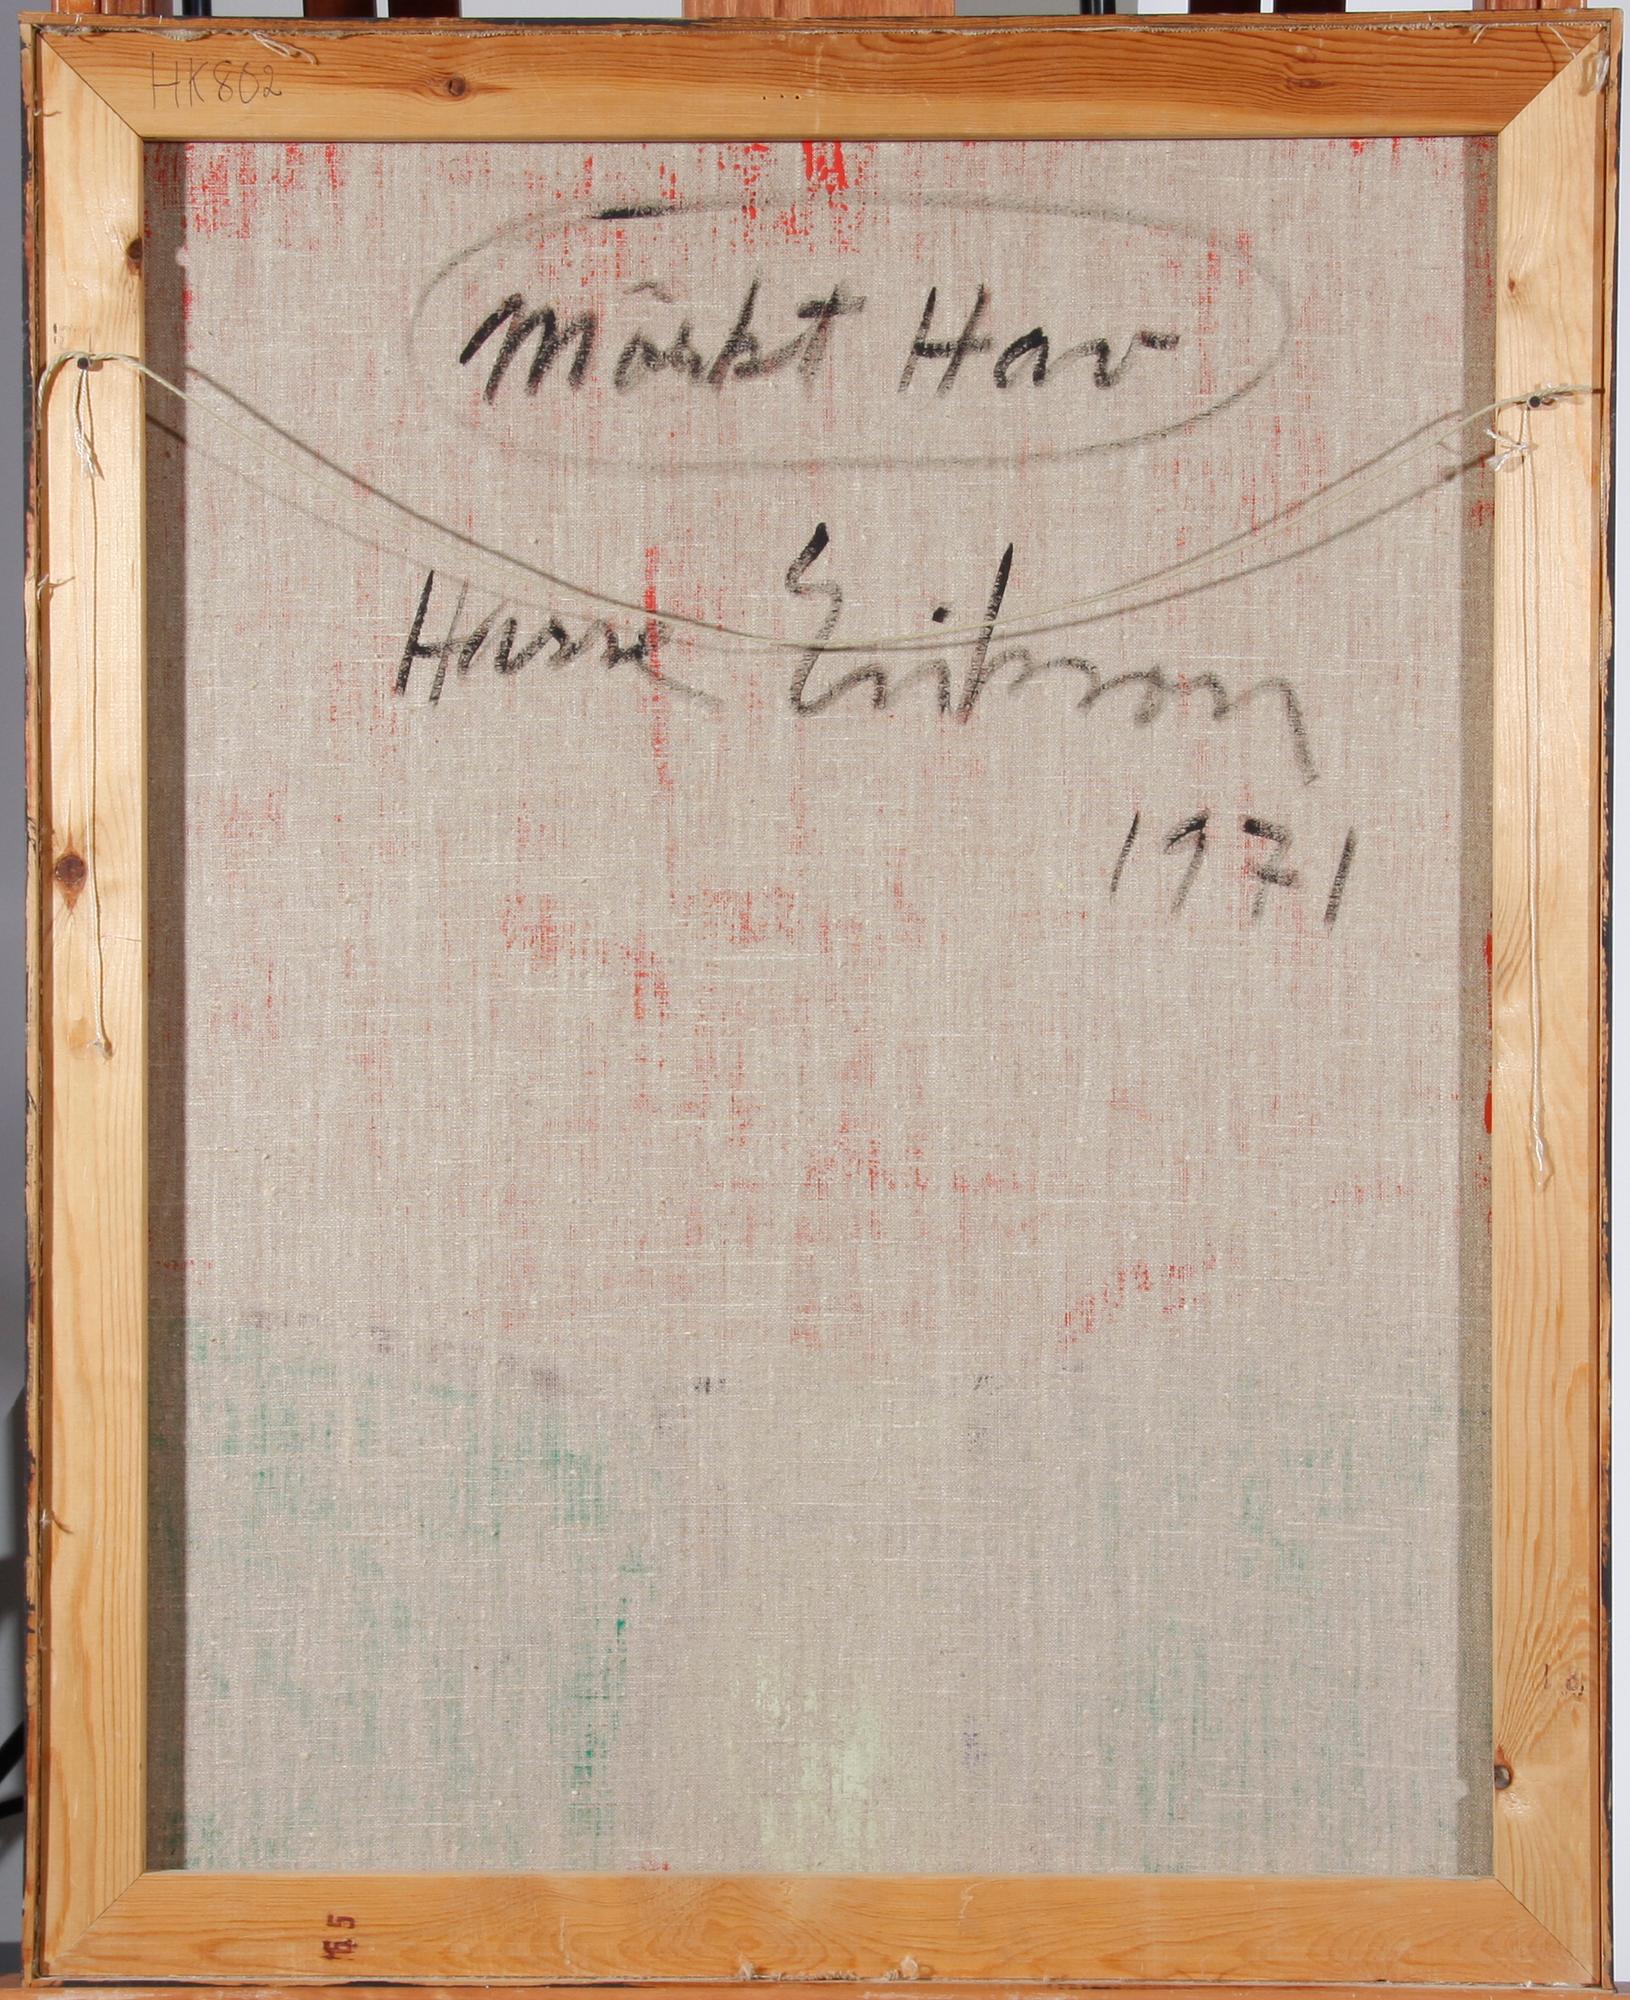 HK802
Mörkt Hav
Hasse Eriksson
1971